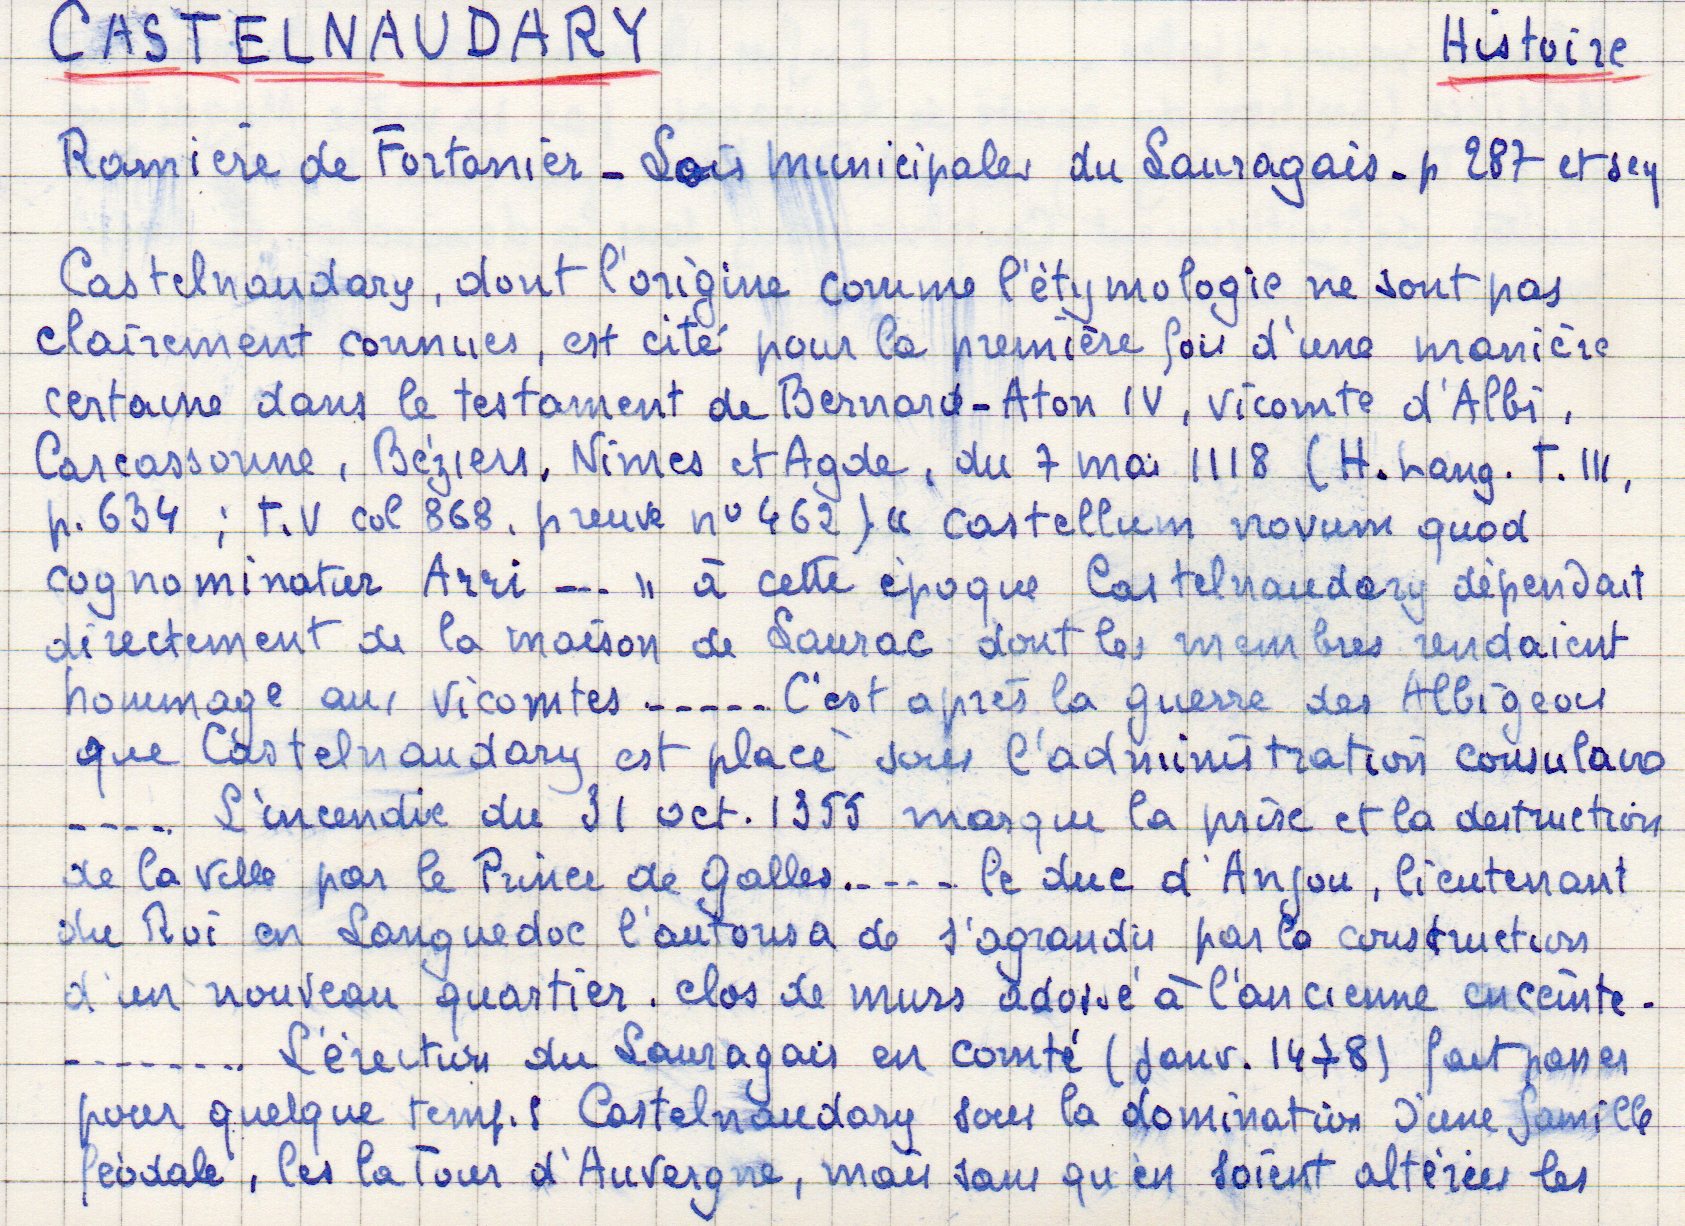 CASTELNAUDARY Histoire
Ramière de Fortanier - Lois municipales du Lauragais - p 287 et seq
Castelnaudary, dont l'origine comme l'étymologie ne sont pas
clairement connues, est cité pour la première fois d'une manière
certaine dans le testament de Bernard-Aton IV, vicomte d'Albi,
Carcassonne, Béziers, Nimes et Agde, du 7 mai 1118 (H. Lang. T. III,
p. 634 ; T. V col 868. preuve n° 462) « castellum novum quod
cognominatur Arri --- » à cette époque Castelnaudary dépendait
directement de la maison de Laurac dont les membres rendaient
hommage aux vicomtes ------ C'est après la guerre des Albigeois
que Castelnaudary est placé sous l'administration consulaire
----. L'incendie du 31 oct. 1355 marque la prise et la destruction
de la ville par le Prince de Galles.----- le duc d'Anjou, lieutenant
du Roi en Languedoc l'autorisa de s'agrandir par la construction
d'un nouveau quartier. clos de murs adossé à l'ancienne enceinte -
--------. L'érection du Lauragais en comté (janv. 1478) fait passer
pour quelque temps Castelnaudary sous la domination d'une famille
féodale, les la Tour d'Auvergne, mais sans qu'en soient altérées les